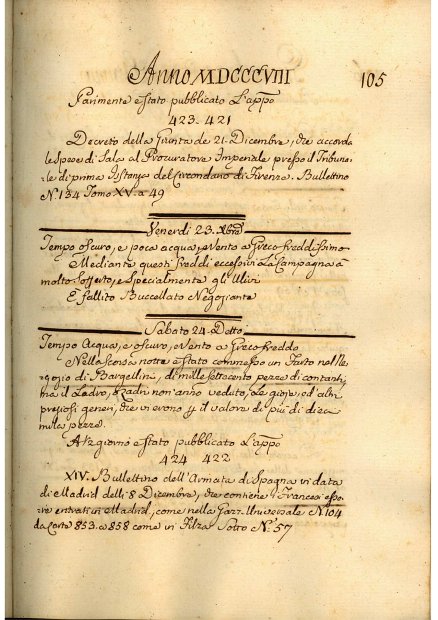 Anno MDCCCVIII 105
Parimente è stato pubblicato l'appo
423-421
Decreto della Giunta de 21. Dicembre, che accorda
le Spese di Sala al Procuratore Imperiale presso il Tribuna-
le di prima Istanza del Circondario di Firenze. Bullettino
N° 134 Tomo XV. a 49
Venerdi 23. Xbre
Tempo oscuro, e poca acqua, e vento a Greco freddissimo
Mediante questi freddi eccessivi la Campagna à
molto sofferto, e specialmente gli Ulivi
È fallito Buccellato Negoziante
Sabato 24. Detto
Tempo Acqua, e oscuro, e vento a Greco freddo
Nella scorsa notte è stato commesso un Furto nel Ne-
gozio di Bargellini, di mille settecento pezze di contanti,
ma il Ladro, ò Ladri non anno veduto, le gioje, ed altri
preziosi generi, che vi erono p il valore di più di dieci
mila pezze.
A 12 giorno è stato pubblicato l'appo
424 422
XIV. Bullettino dell'Armata di Spagna in data
di Madrid delli 8 Dicembre, che contiene i Francesi esse-
re entrati in Madrid, come nella Gazz. Universale N. 104
da Carte 853. a 858 come in Filza Sotto N° 57